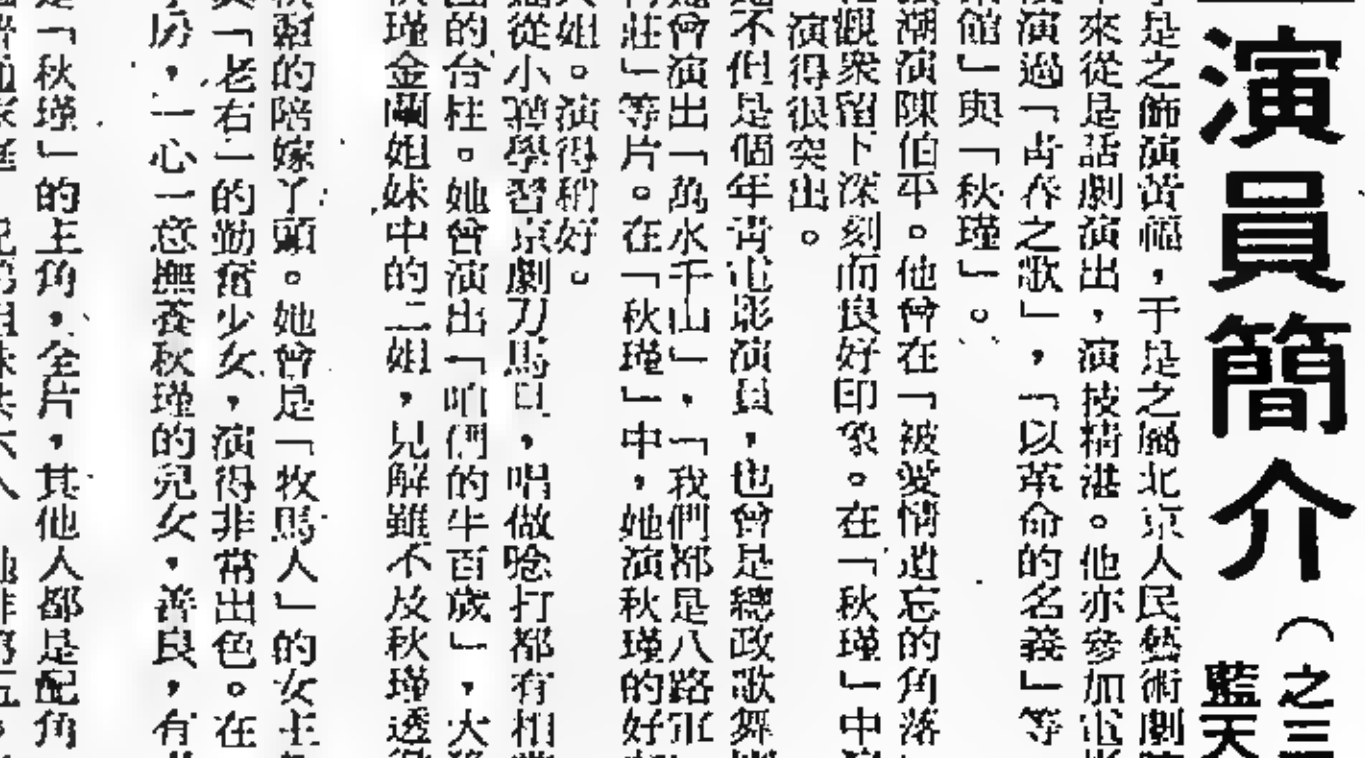 演員簡介
（之三
藍天
是之飾演黃福，于是之屬北京人民藝術劇
來從是話劇演出，演技精湛。他亦參加電
演過「青春之歌」，「以革命的名義」等
館」與「秋瑾」。
潮演陳伯平。他曾在「被愛情遺忘的角落
觀衆留下深刻而良好印象。在「秋瑾」中
演得很突出。
不但是個年青電影演員，也曾是總政歌舞
曾演出「萬水千山」，「我們都是八路軍
莊」等片。在「秋瑾」中，她演秋瑾的好
姐。演得稍好。
從小學習京劇刀馬旦，唱做唸打都有相
的台柱。她曾演出「咱們的牛百歲」，大
瑾金蘭姐妹中的二姐，見解雖不及秋瑾透
的陪嫁丫頭。她曾是「牧馬人」的女主
「老右」的勤奮少女，演得非常出色。在
房，一心一意撫養秋瑾的兒女，善良，有
「秋瑾」的主角，全片，其他人都是配角